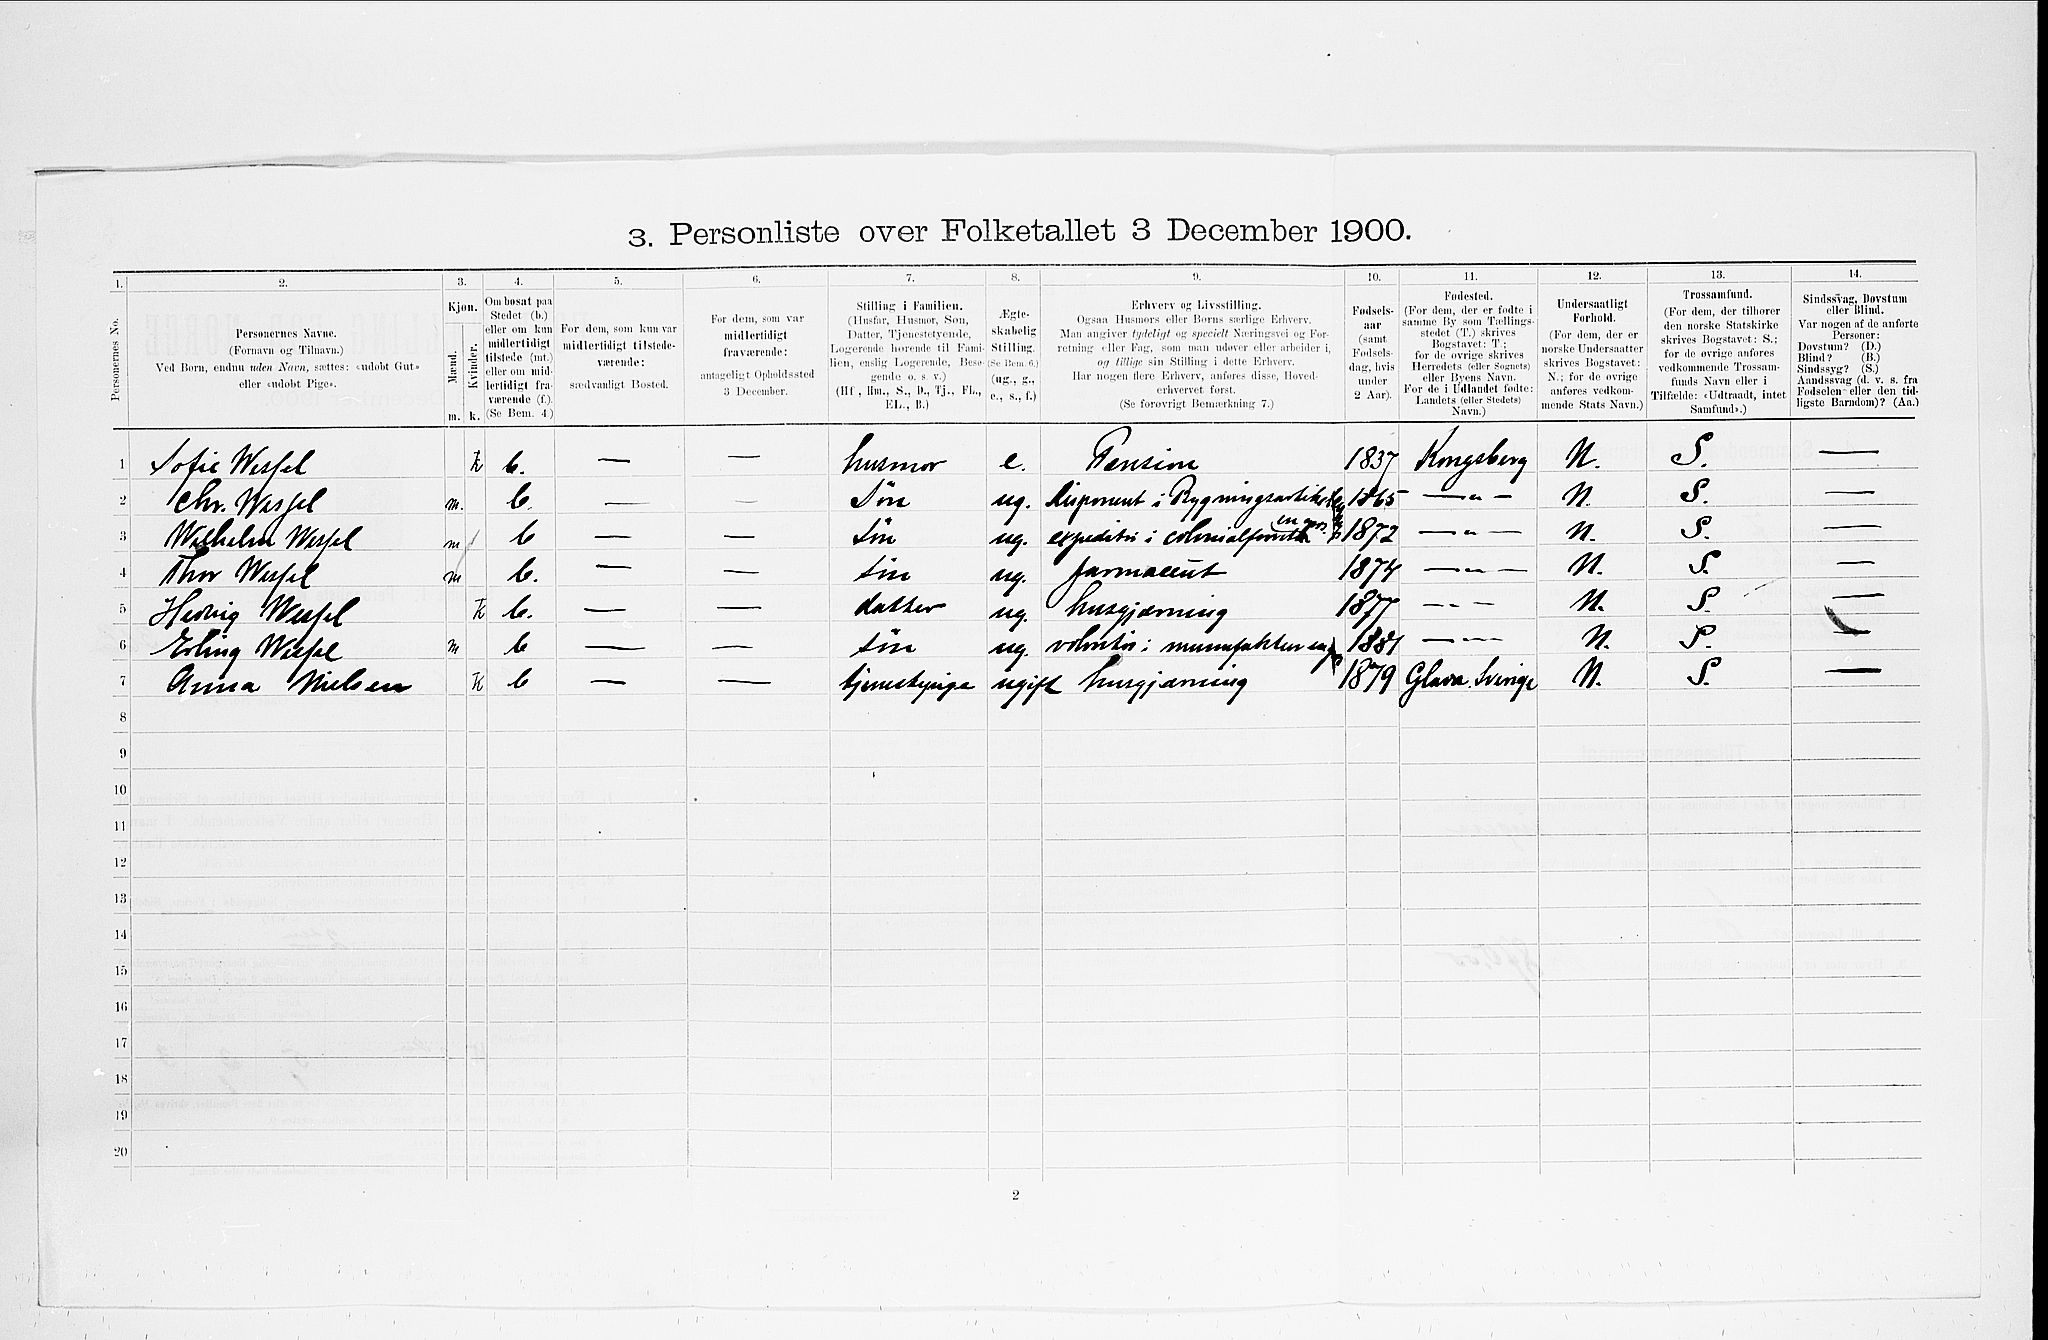 3. Personliste over Folketallet 3 December 1900.
1. 2. 3. 4. 5. 6. 7. 8. 9. 10. 11. 12. 13. 14.
Personernes No.
Personernes Navne.
(Fornavn og Tilnavn.)
Ved Børn, endnu uden Navn, sættes: «udøbt Gut»
eller «udøbt Pige».
Kjøn.
Mænd.
Kvinder.
m. k.
Om bosat paa
Stedet (b.)
eller om kun
midlertidigt
tilstede (mt.)
eller om mid-
lertidigt fra-
værende (f.).
(Se Bem. 4.)
For dem, som kun var
midlertidigt tilstede-
værende:
sædvanligt Bosted.
For dem, som var
midlertidigt
fraværende:
antageligt Opholdssted
3 December.
Stilling i Familien.
(Husfar, Husmor, Søn,
Datter, Tjenestetyende,
Logerende hørende til Fami-
lien, enslig Logerende, Besø-
gende o. s. v.)
(Hf., Hm., S., D., Tj., FL.,
EL., B.)
Ægte-
skabelig
Stilling.
(Se Bem. 6.)
(ug., g.,
e., s., f.)
Erhverv og Livsstilling.
Ogsaa Husmors eller Børns særlige Erhverv.
Man angiver tydeligt og specielt Næringsvei og For-
retning eller Fag, som man udøver eller arbeider i,
og tillige sin Stilling i dette Erhverv.
Har nogen flere Erhverv, anføres disse, Hoved-
erhvervet først.
(Se forøvrigt Bemærkning 7.)
Fødsels-
aar
(samt
Fødsels-
dag, hvis
under
2 Aar).
Fødested.
(For dem, der er fødte i
samme By som Tællings-
stedet (T.) skrives
Bogstavet: T;
for de øvrige skrives
Herredets (eller Sognets)
eller Byens Navn.
For de i Udlandet fødte:
Landets (eller Stedets)
Navn.)
Undersaatligt
Forhold.
(For dem, der er
norske Undersaatter
skrives Bogstavet:
N.; for de øvrige
anføres vedkom-
mende Stats Navn.)
Trossamfund.
(For dem, der tilhører
den norske Statskirke
skrives Bogstavet: S.;
for de øvrige anføres
vedkommende Trossam-
funds Navn eller i
Tilfælde: «Udtraadt, intet
Samfund».)
Sindssvag, Døvstum
eller Blind.
Var nogen af de anførte
Personer:
Døvstum? (D.)
Blind? (B.)
Sindssyg? (S.)
Aandssvag (d. v. s. fra
Fødselen eller den tid-
ligste Barndom)? (Aa.)
1 Sofie Wessel k b. — — husmor e. Pension 1837 Kongsberg N. S. —
2 Chr. Wessel m. b. — — Søn ug. Disponent i Bygningsartikel 1865 —"— N. S. —
3 Wilhelm Wessel m b — — Søn ug. expeditør i colonialforretn en gros 1872 —"— N. S. —
4 Thor Wessel m b. — — Søn ug. farmaceut 1874 —"— N. S. —
5 Hedvig Wessel k b. — — datter ug. husgjærning 1877 —"— N. S. —
6 Erling Wessel m b — — Søn ug. volontør i manufaktur en 1881 —"— N. S. —
7 Anna Nielsen k b — — tjenestepige ugift husgjærning 1879 Glava. Sverige N. S. —
8
9
10
11
12
13
14
15
16
17
18
19
20
2